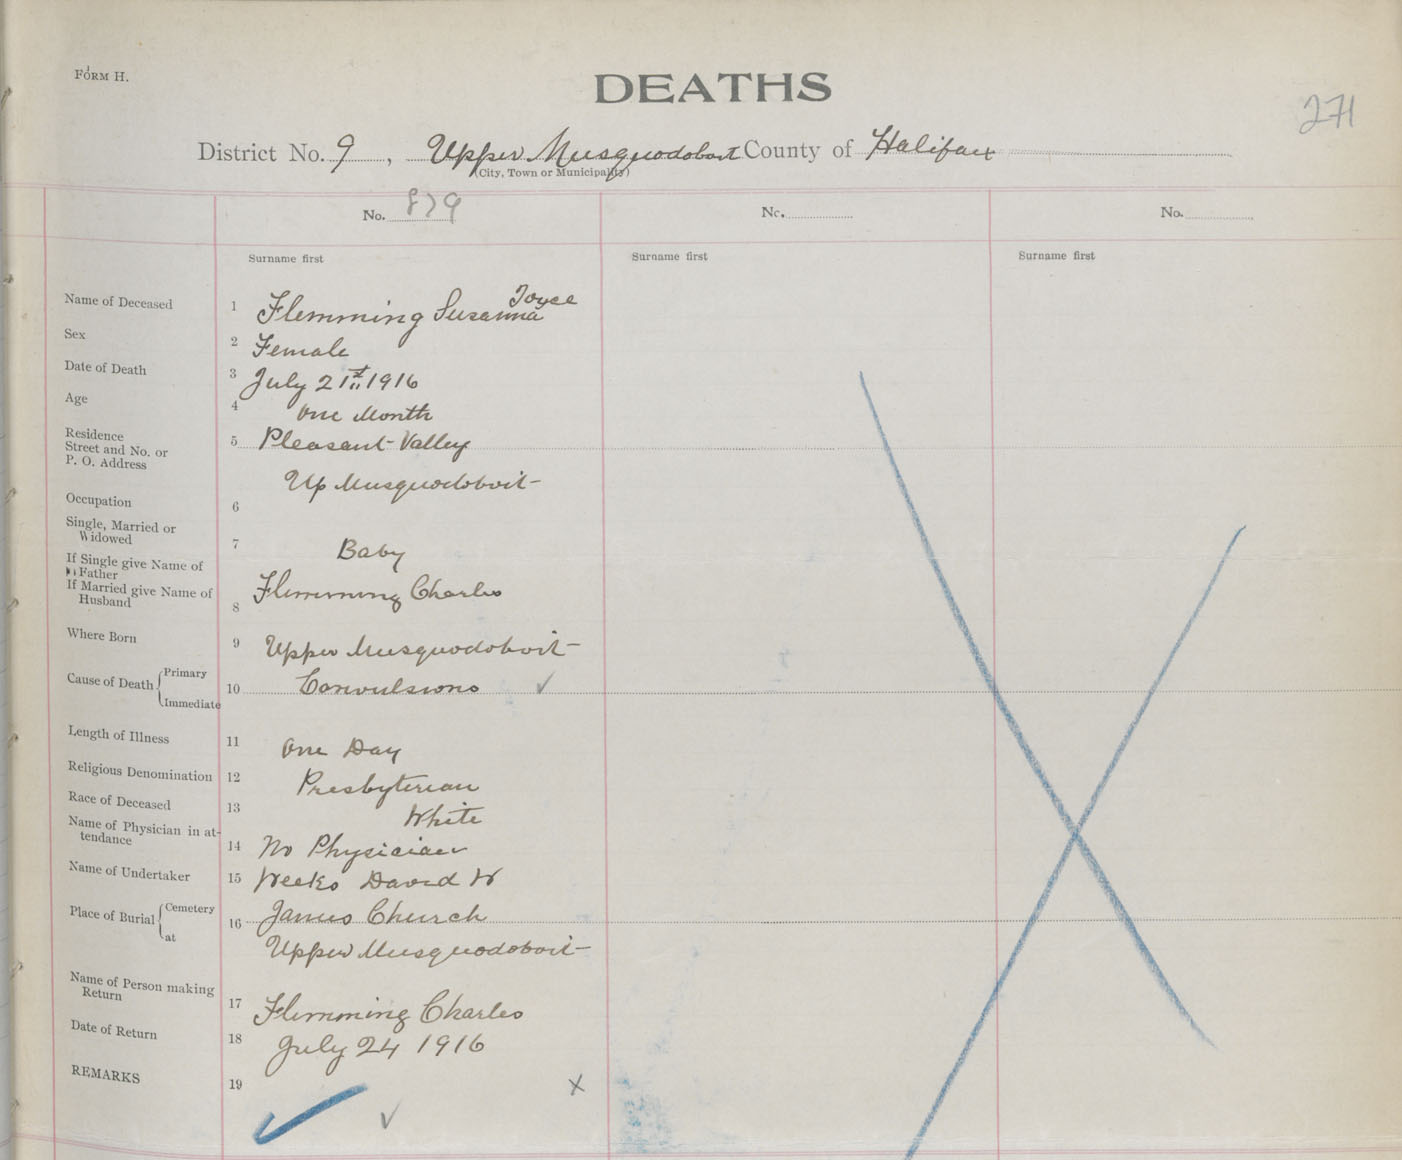 FORM H.
DEATHS
271
District No. 9, Upper Musquodoboit County of Halifax
(City, Town or Municipality)
No. 879
No.
No.
Surname first
Surname first
Surname first
Name of Deceased 1 Flemming Susanna Joyce
Sex 2 Female
Date of Death 3 July 21st 1916
Age 4 One Month
Residence
Street and No. or
P. O. Address
5 Pleasant Valley
Up Musquodoboit
Occupation 6
Single, Married or
Widowed
7 Baby
If Single give Name of
Father
If Married give Name of
Husband
8 Flemming Charles
Where Born 9 Upper Musquodoboit
Cause of Death { Primary
Immediate
10 Convulsions ✓
Length of Illness 11 One Day
Religious Denomination 12 Presbyterian
Race of Deceased 13 White
Name of Physician in at-
tendance
14 No Physician
Name of Undertaker 15 Weeks David W
Place of Burial { Cemetery
at
16 James Church
Upper Musquodoboit
Name of Person making
Return
17 Flemming Charles
Date of Return 18 July 24 1916
REMARKS 19